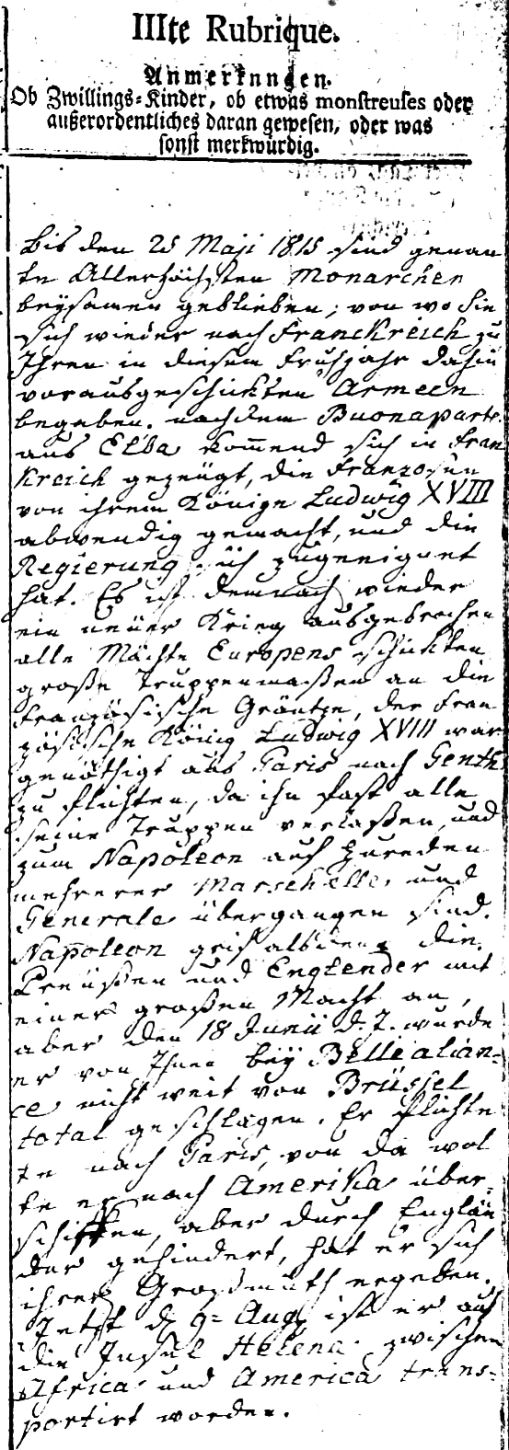 IIIte Rubrique.
Anmerknngen.
Ob Zwillings-Kinder, ob etwas monstreuses oder
außerordentliches daran gewesen, oder was
sonst merkwürdig.
Bis den 25 Maji 1815 sind genan
te Allerhöchsten Monarchen
beysamen geblieben; von wo Sie
sich wieder nach Franckreich zu
Ihren in diesem Fruhjahr dahin
vorausgeschickten Armeen
begeben. nachdem Buonaparte
aus Elba komend sich in Fran
kreich gezeügt, die Franzosen
von ihrem Könige Ludwig XVIII
abwendig gemacht, und die
Regierung sich zugeeignet
hat. Es ist demnach wieder
ein neüer Krieg ausgebrochen
alle Mächte Europens schickten
große Truppenmaßen an die
französische Gräntze, der Fran
zösische König Ludwig XVIII war
genöthigt aus Paris nach Genth
zu flichten, da ihn fast alle
seine Truppen verlaßen, und
zum Napoleon auf zureden
mehrerer Marschelle, und
Generale übergangen sind.
Napoleon grif die
Preüßen und Engländer mit
einer großen Macht an,
aber den 18 Junii d. J. wurde
er von Ihnen bey Bellealian-
ce nicht weit von Brüssel
total geschlagen. Er flichte
te nach Paris, von da wol
te er nach Amerika über-
schiffen, aber durch Englän
der gehindert, hat er sich
ihrer Großmuth ergeben.
Jetzt d. 9= Aug ist er auf
die Insul Helena zwischen
Africa und America trans-
portirt worden.